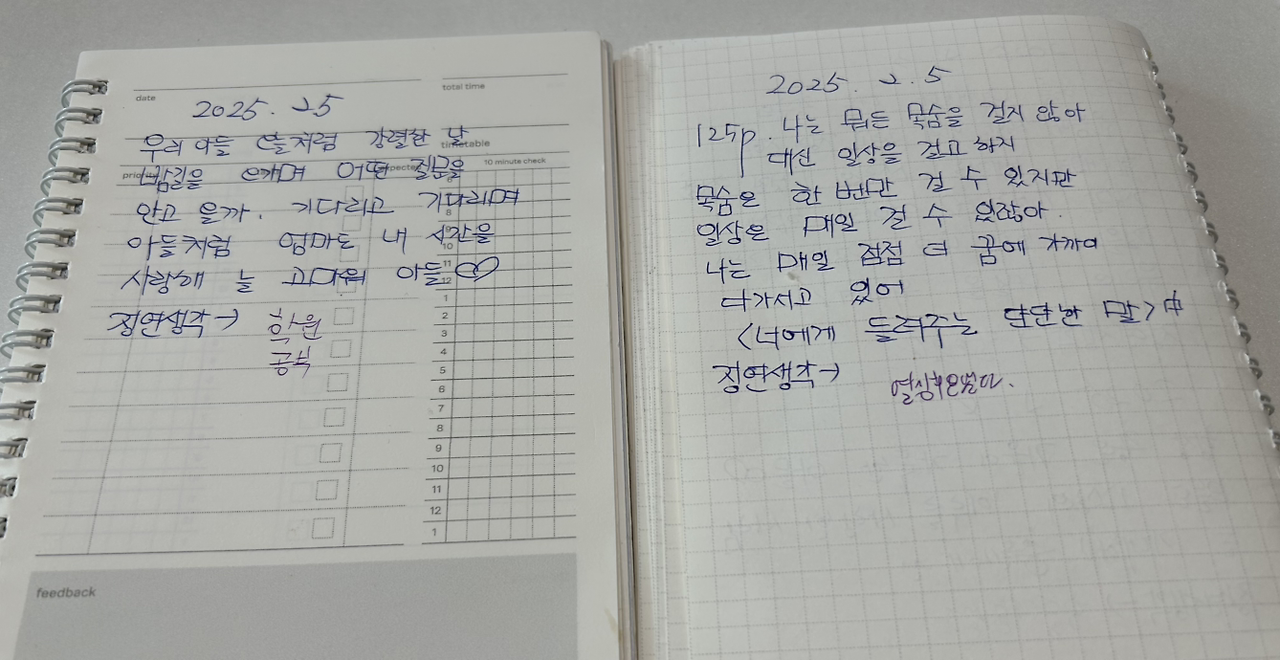 date
total time
2025. 2.5
우리 아들 오늘처럼 강렬한 날
timetable
10 minute check
밤길을 오가며 어떤 질문을
안고 올까. 기다리고 기다리며
8
아들처럼 엄마도 내 시간을
10
사랑해 늘 고마워 아들♡
11
12
1
정연생각→ 학원
2
3
공부
4
5
6
7
8
9
10
11
12
1
feedback
2025. 2. 5
125p. 나는 뭐든 목숨을 걸지 않아
대신 일상을 걸고 하지
목숨은 한 번만 걸 수 있지만
일상은 매일 걸 수 있잖아.
나는 매일 점점 더 꿈에 가까이
다가서고 있어
<너에게 들려주는 단단한 말>中
정연생각→